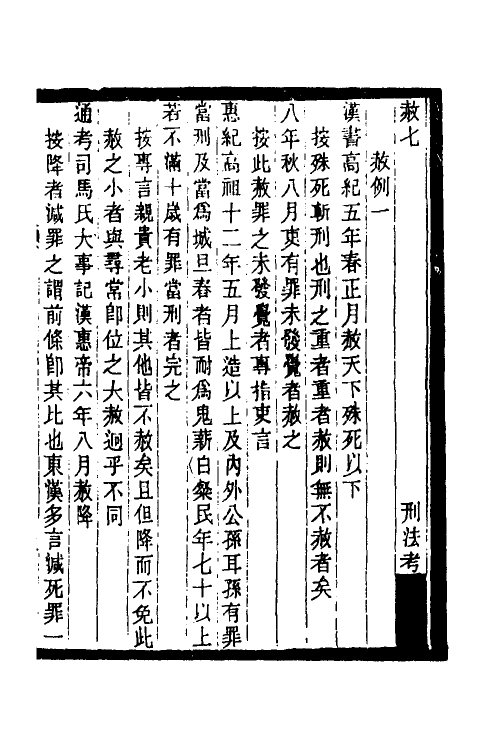 赦七
刑法考
赦例一
漢書高紀五年春正月赦天下殊死以下
按殊死斬刑也刑之重者重者赦則無不赦者矣
八年秋八月吏有罪未發覺者赦之
按此赦罪之未發覺者專指吏言
惠紀高祖十二年五月上造以上及內外公孫耳孫有罪
當刑及當爲城旦舂者皆耐爲鬼薪白粲民年七十以上
若不滿十歲有罪當刑者完之
按專言親貴老小則其他皆不赦矣且但降而不免此
赦之小者與尋常卽位之大赦迥乎不同
通考司馬氏大事記漢惠帝六年八月赦降
按降者減罪之謂前條卽其比也東漢多言減死罪一